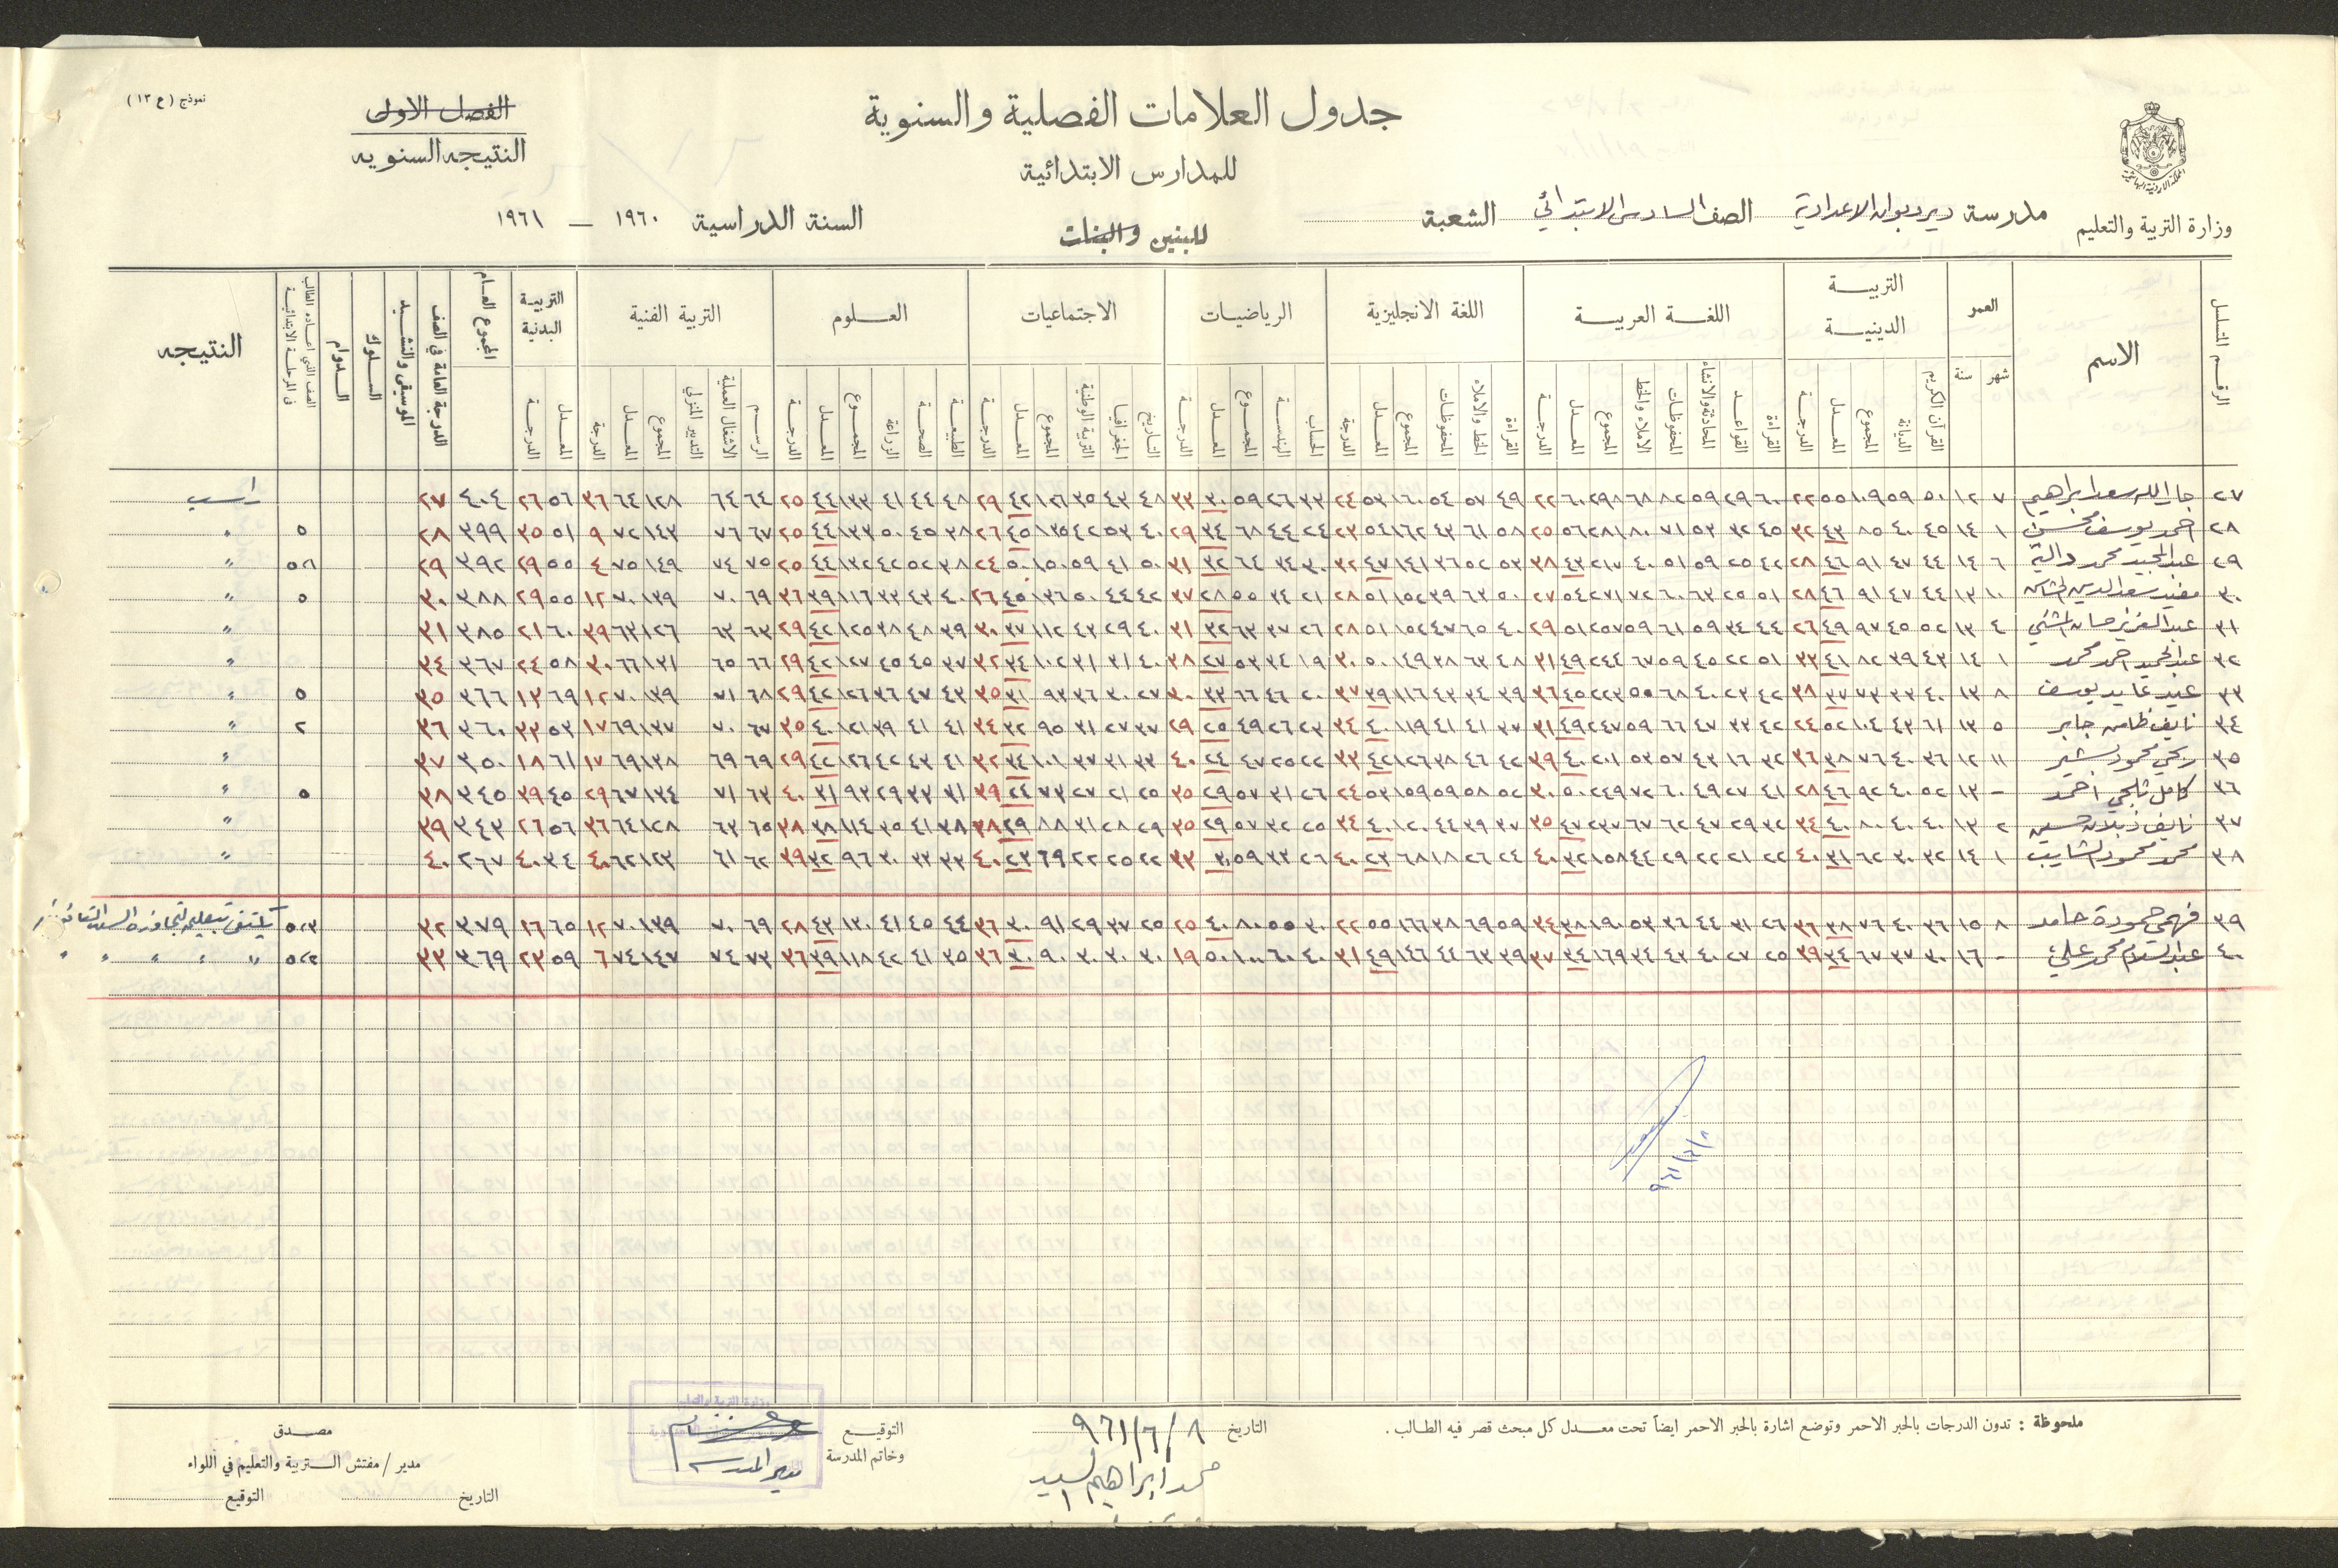 نموذج (ع ١٣)
جدول العلامات الفصلية والسنوية
الفصل الاول
النتيجه السنويه
للمدارس الابتدائية
المملكة الاردنية الهاشمية
وزارة التربية والتعليم
مدرسة ديردبوان الاعدادية الصف السادس الابتدائي الشعبة
للبنين والبنات
السنة الدراسية ١٩٦٠ — ١٩٦١
الرقم المتسلسل
الاسم
العمر
شهر سنة
التربية الدينية
القرآن الكريم الديانة المجموع المعدل الدرجة
اللغة العربية
القراءة القواعد المحادثة والانشاء المحفوظات الاملاء والخط المجموع المعدل الدرجة
اللغة الانجليزية
القراءة الخط والاملاء المحفوظات المجموع المعدل الدرجة
الرياضيات
الحساب الهندسة المجموع المعدل الدرجة
الاجتماعيات
التاريخ الجغرافيا التربية الوطنية المجموع المعدل الدرجة
العلوم
الطبيعة الصحة الزراعة المجموع المعدل الدرجة
التربية الفنية
الرسم الاشغال العملية التدبير المنزلي المجموع المعدل الدرجة
التربية البدنية
المعدل الدرجة
المجموع العام
الدرجة العامة في الصف
الموسيقى والنشيد
السلوك
الدوام
الصف الذي اعاده الطالب في المرحلة الابتدائية
النتيجه
٢٧ جارالله سعد ابراهيم ٧ ١٢ ٥٠ ٥٩ ١٠٩ ٥٥ ٢٢ ٦٠ ٢٩ ٥٩ ٨٢ ٦٨ ٢٩٨ ٦٠ ٢٢ ٤٩ ٥٧ ٥٤ ١٦٠ ٥٣ ٢٤ ٣٣ ٢٦ ٥٩ ٣٠ ٣٣ ٤٨ ٤٣ ٣٥ ١٢٦ ٤٢ ٢٩ ٤٨ ٤٤ ٤١ ١٣٣ ٤٤ ٢٥ ٦٤ ٦٤ ١٢٨ ٦٤ ٣٦ ٥٦ ٢٦ ٤٠٤ ٢٧ راسب
٢٨ احمد يوسف محسن ١ ١٤ ٤٥ ٤٠ ٨٥ ٤٣ ٣٢ ٤٥ ٣٢ ٥٣ ٧١ ٨٠ ٢٨١ ٥٦ ٢٥ ٥٨ ٦١ ٤٣ ١٦٢ ٥٤ ٢٣ ٢٤ ٤٤ ٦٨ ٣٤ ٢٩ ٤٠ ٥٣ ٤٢ ١٣٥ ٤٥ ٢٦ ٣٨ ٤٥ ٥٠ ١٣٣ ٤٤ ٢٥ ٦٧ ٧٦ ١٤٣ ٧٢ ٩ ٥١ ٣٥ ٣٩٩ ٢٨ ٥ "
٢٩ عبدالمجيد محمد دالية ٦ ١٤ ٤٤ ٤٧ ٩١ ٤٦ ٢٨ ٤٢ ٢٥ ٥٩ ٥١ ٤٠ ٢١٧ ٤٣ ٣٨ ٥٣ ٥٢ ٣٦ ١٤١ ٤٧ ٣٢ ٣٠ ٣٤ ٦٤ ٣٢ ٣١ ٥٠ ٤١ ٥٩ ١٥٠ ٥٠ ٢٤ ٣٨ ٥٢ ٤٢ ١٣٢ ٤٤ ٢٥ ٧٥ ٧٤ ١٤٩ ٧٥ ٤ ٥٥ ٢٩ ٣٩٢ ٢٩ ٥،٢ "
٣٠ مفيد سعدالدين ١٠ ١٣ ٤٤ ٤٧ ٩١ ٤٦ ٢٨ ٥١ ٢٥ ٦٣ ٦٠ ٧٢ ٢٧١ ٥٤ ٢٧ ٥٠ ٦٣ ٣٩ ١٥٢ ٥١ ٢٨ ٢١ ٣٤ ٥٥ ٢٨ ٣٧ ٤٢ ٤٤ ٥٠ ١٣٦ ٤٥ ٢٦ ٤٠ ٤٣ ٣٣ ١١٦ ٣٩ ٣٦ ٦٩ ٧٠ ١٣٩ ٧٠ ١٢ ٥٥ ٢٩ ٣٨٨ ٣٠ ٥ "
٣١ عبدالعزيز حسان ٤ ١٣ ٥٢ ٤٥ ٩٧ ٤٩ ٢٦ ٤٤ ٣٤ ٥٩ ٦١ ٥٩ ٢٥٧ ٥١ ٢٩ ٤٠ ٦٥ ٤٧ ١٥٢ ٥١ ٢٨ ٢٦ ٣٧ ٦٣ ٣٢ ٣١ ٤٠ ٢٩ ٤٣ ١١٢ ٣٧ ٣٠ ٣٩ ٤٨ ٣٨ ١٢٥ ٤٢ ٢٩ ٦٣ ٦٣ ١٢٦ ٦٣ ٣٩ ٦٠ ٢١ ٣٨٥ ٣١ "
٣٢ عبدالحميد احمد محمد ١ ١٤ ٤٣ ٣٩ ٨٢ ٤١ ٣٣ ٥١ ٢٢ ٤٥ ٥٩ ٦٧ ٢٤٤ ٤٩ ٣١ ٤٨ ٦٣ ٣٨ ١٤٩ ٥٠ ٣٠ ١٩ ٣٤ ٥٣ ٢٧ ٣٨ ٤٠ ٣١ ٣١ ١٠٢ ٣٤ ٣٢ ٣٧ ٤٥ ٤٥ ١٢٧ ٤٢ ٢٩ ٦٦ ٦٥ ١٣١ ٦٦ ٣٠ ٥٨ ٢٤ ٣٦٧ ٣٤ "
٣٣ عيد عايد يوسف ٨ ١٣ ٤٠ ٣٣ ٧٣ ٣٧ ٣٨ ٤٢ ٢٣ ٤٠ ٦٨ ٥٠ ٢٢٣ ٤٥ ٣٦ ٣٩ ٣٤ ٤٣ ١١٦ ٣٩ ٣٧ ٢٠ ٤٦ ٦٦ ٣٣ ٣٠ ٢٧ ٣٠ ٣٦ ٩٣ ٣١ ٣٥ ٤٣ ٤٧ ٣٦ ١٢٦ ٤٢ ٢٩ ٦٨ ٧١ ١٣٩ ٧٠ ١٢ ٦٩ ١٣ ٣٦٦ ٣٥ ٥ "
٣٤ نايف ظاهر جابر ٥ ١٣ ٦١ ٤٣ ١٠٤ ٥٢ ٢٤ ٤٢ ٣٣ ٤٧ ٦٦ ٥٩ ٢٤٧ ٤٩ ٣١ ٣٧ ٤١ ٤١ ١١٩ ٤٠ ٣٤ ٢٣ ٢٦ ٤٩ ٢٥ ٢٩ ٣٧ ٢٧ ٣١ ٩٥ ٣٢ ٣٤ ٤١ ٤١ ٣٩ ١٢١ ٤٠ ٣٥ ٦٧ ٧٠ ١٣٧ ٦٩ ١٧ ٥٣ ٣٣ ٣٦٠ ٣٦ ٢ "
٣٥ ربحي محمود بشير ١١ ١٢ ٣٦ ٤٠ ٧٦ ٣٨ ٣٦ ٣٢ ١٦ ٤٣ ٥٧ ٥٣ ٢٠١ ٤٠ ٣٩ ٤٢ ٤٦ ٣٨ ١٢٦ ٤٢ ٣٣ ٢٢ ٢٥ ٤٧ ٢٤ ٤٠ ٣٣ ٣١ ٣٧ ١٠١ ٣٤ ٣٢ ٤١ ٤٣ ٤٢ ١٢٦ ٤٢ ٢٩ ٦٩ ٦٩ ١٣٨ ٦٩ ١٧ ٦١ ١٨ ٣٥٠ ٣٧ "
٣٦ كامل ثلجي احمد - ١٣ ٥٢ ٤٠ ٩٢ ٤٦ ٢٨ ٤١ ٢٧ ٤٩ ٦٠ ٧٢ ٢٤٩ ٥٠ ٣٠ ٥٨ ٥٢ ٥٩ ١٥٩ ٥٣ ٢٤ ٢٦ ٣١ ٥٧ ٢٩ ٣٥ ٢٥ ٢١ ٢٧ ٧٣ ٢٤ ٣٩ ٣١ ٣٣ ٢٩ ٩٣ ٣١ ٤٠ ٦٣ ٧١ ١٣٤ ٦٧ ٢٩ ٤٥ ٣٩ ٣٤٥ ٣٨ ٥ "
٣٧ نايف ذبلان حسين ٢ ١٣ ٤٠ ٤٠ ٨٠ ٤٠ ٣٤ ٣٢ ٢٩ ٤٧ ٦٢ ٦٧ ٢٣٧ ٤٧ ٣٥ ٣٧ ٣٩ ٤٤ ١٢٠ ٤٠ ٣٤ ٢٥ ٣٢ ٥٧ ٢٩ ٣٥ ٢٩ ٢٨ ٣١ ٨٨ ٢٩ ٣٨ ٣٨ ٤١ ٣٥ ١١٤ ٣٨ ٣٨ ٦٥ ٦٣ ١٢٨ ٦٤ ٣٦ ٥٦ ٢٦ ٣٤٣ ٣٩ "
٣٨ محمد محمود الشايب ١ ١٤ ٣٢ ٣٠ ٦٢ ٣١ ٤٠ ٢٢ ٢١ ٢٢ ٢٩ ٤٤ ١٥٨ ٣٢ ٤٠ ٢٤ ٢٦ ١٨ ٦٨ ٢٣ ٤٠ ٢٦ ٣٣ ٥٩ ٣٠ ٣٣ ٢٢ ٢٥ ٢٢ ٦٩ ٢٣ ٤٠ ٣٣ ٣٣ ٣٠ ٩٦ ٣٢ ٣٩ ٦٢ ٦١ ١٢٣ ٦٢ ٤٠ ٣٤ ٤٠ ٢٦٧ ٤٠ "
٣٩ فهمي حمودة حامد ٨ ١٥ ٣٦ ٤٠ ٧٦ ٣٨ ٣٦ ٢٦ ٣١ ٤٤ ٣٦ ٥٣ ١٩٠ ٣٨ ٣٤ ٥٩ ٦٩ ٣٨ ١٦٦ ٥٥ ٢٢ ٣٠ ٥٠ ٨٠ ٤٠ ٢٥ ٢٥ ٣٧ ٢٩ ٩١ ٣٠ ٣٦ ٤٤ ٤٥ ٤١ ١٣٠ ٤٣ ٢٨ ٦٩ ٧٠ ١٣٩ ٧٠ ١٢ ٦٥ ١٦ ٣٧٩ ٣٢ ٥،٣ يكتفى بتعليمه لتجاوزه السن القانوني
٤٠ عبدالسلام محمد علي - ١٦ ٣٠ ٣٧ ٦٧ ٣٤ ٣٩ ٢٥ ٢٧ ٤٠ ٤٣ ٣٤ ١٦٩ ٣٤ ٣٧ ٣٩ ٦٣ ٤٤ ١٤٦ ٤٩ ٣١ ٤٠ ٦٠ ١٠٠ ٥٠ ١٩ ٣٠ ٣٠ ٣٠ ٩٠ ٣٠ ٣٦ ٣٥ ٤١ ٤٢ ١١٨ ٣٩ ٣٦ ٧٣ ٧٤ ١٤٧ ٧٤ ٦ ٥٩ ٢٣ ٣٦٩ ٣٣ ٥،٢ " " " " "
ملحوظة : تدون الدرجات بالحبر الاحمر وتوضع اشارة بالحبر الاحمر ايضاً تحت معدل كل مبحث قصر فيه الطالب .
التاريخ ٩٦١/٦/٨
محمد ابراهيم السيد
التوقيع
وخاتم المدرسة
مدير المدرسة
مصدق
مدير / مفتش التربية والتعليم في اللواء
التاريخ التوقيع